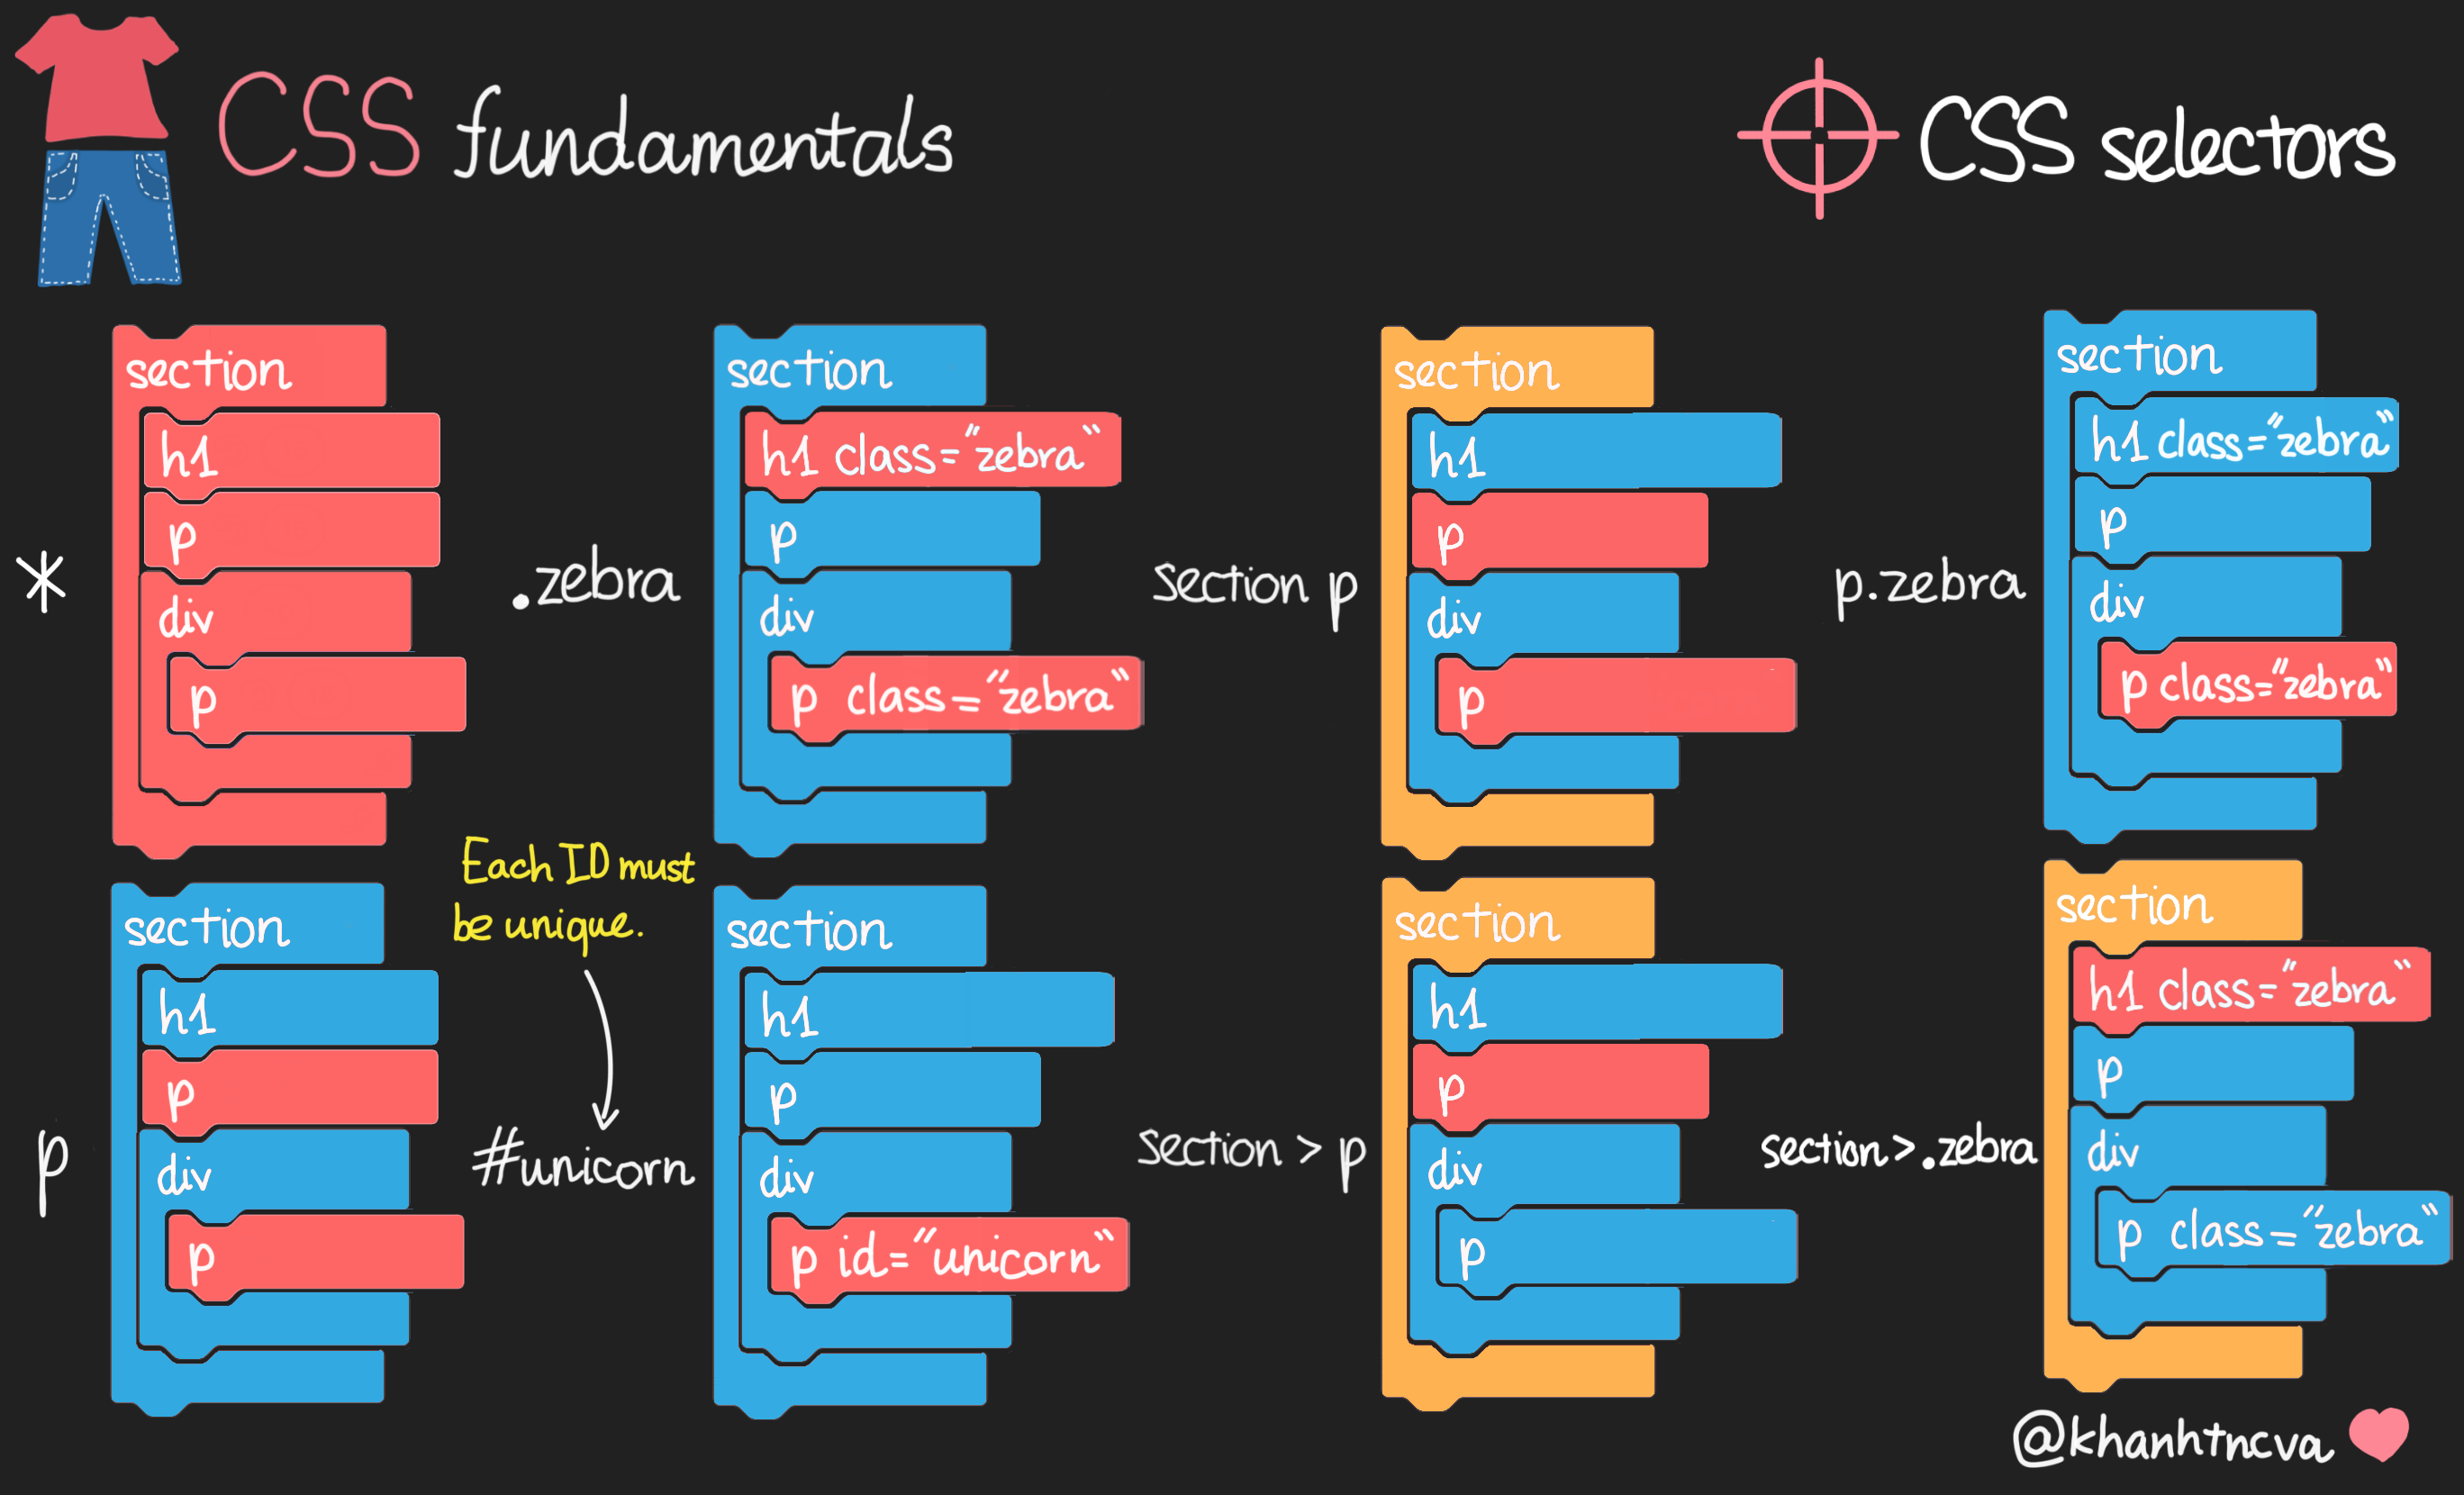 CSS fundamentals
CSS selectors
*
section
h1
p
div
p
.zebra
section
h1 class="zebra"
p
div
p class="zebra"
section p
section
h1
p
div
p
p.zebra
section
h1 class="zebra"
p
div
p class="zebra"
p
section
h1
p
div
p
Each ID must
be unique.
#unicorn
section
h1
p
div
p id="unicorn"
section > p
section
h1
p
div
p
section>.zebra
section
h1 class="zebra"
p
div
p class="zebra"
@khanhtncva